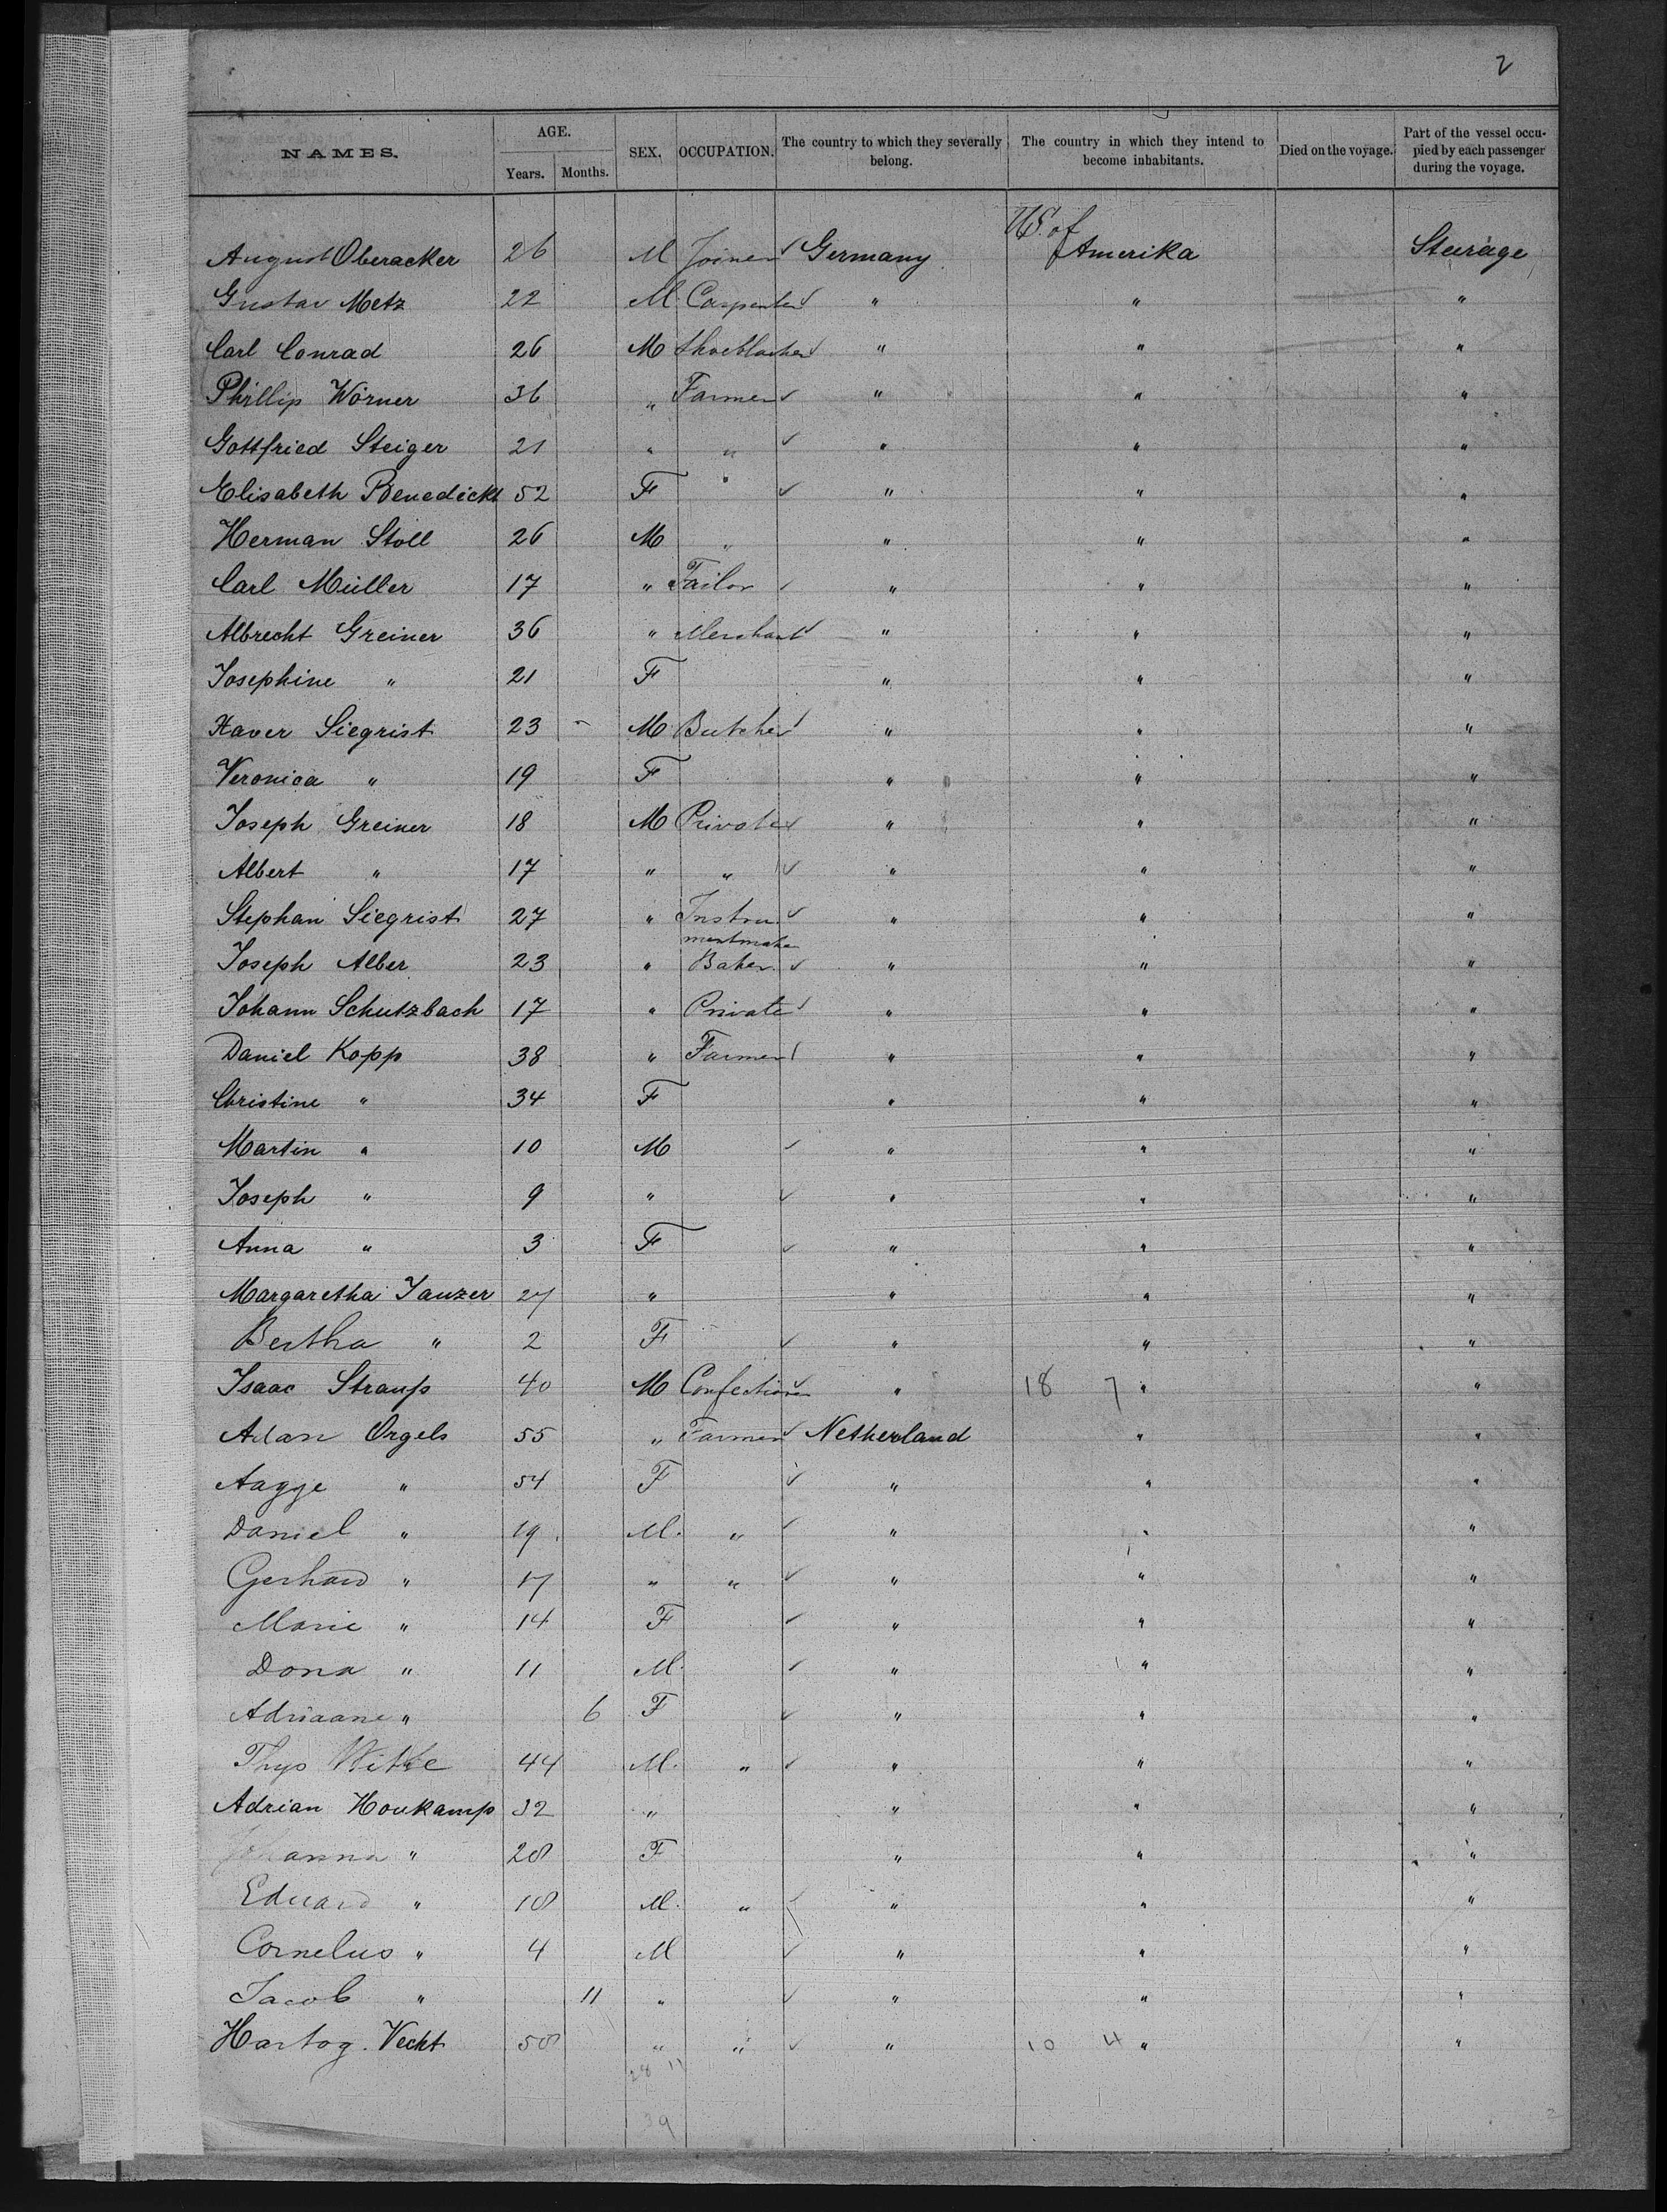 2
NAMES. AGE. Years. Months. SEX. OCCUPATION. The country to which they severally belong. The country in which they intend to become inhabitants. Died on the voyage. Part of the vessel occupied by each passenger during the voyage.
US. of
August Oberacker 26 M Joiner Germany Amerika Steerage
Gustav Metz 22 M. Carpenter " " "
Carl Conrad 26 M " " "
Phillip Wörner 36 " Farmer " " "
Gottfried Steiger 21 " " " " "
Elisabeth Benedickt 52 F " " " "
Herman Stoll 26 M " " " "
Carl Müller 17 " Tailor " " "
Albrecht Greiner 36 " Merchant " " "
Josephine " 21 F " " "
Xaver Siegrist 23 - M Butcher " " "
Veronica " 19 F " " "
Joseph Greiner 18 M Private " " "
Albert " 17 " " " " "
Stephan Siegrist 27 " Instru " " "
mentmaker
Joseph Alber 23 " Baker " " "
Johann Schutzbach 17 " Private " " "
Daniel Kopp 38 " Farmer " " "
Christine " 34 F " " "
Martin " 10 M " " "
Joseph " 9 " " " "
Anna " 3 F " " "
Margaretha Janzer 27 " " " "
Bertha " 2 F " " "
Isaac Strauss 40 M Confectioner " 18 7 " "
Adam Orgels 55 " Farmer Netherland " "
Aagje " 54 F " " "
Daniel " 19 M. " " " "
Gerhard " 17 " " " " "
Marie " 14 F " " "
Dona " 11 M. " " "
Adriaane " 6 F " " "
Thys Witte 44 M. " " " "
Adrian Houkamp 32 " " " "
Johanna " 28 F " " "
Eduard " 18 M. " " " "
Cornelus " 4 M " " "
Jacob " 11 " " " "
Hartog. Vecht 58 " " " 10 4 " "
28 11
39